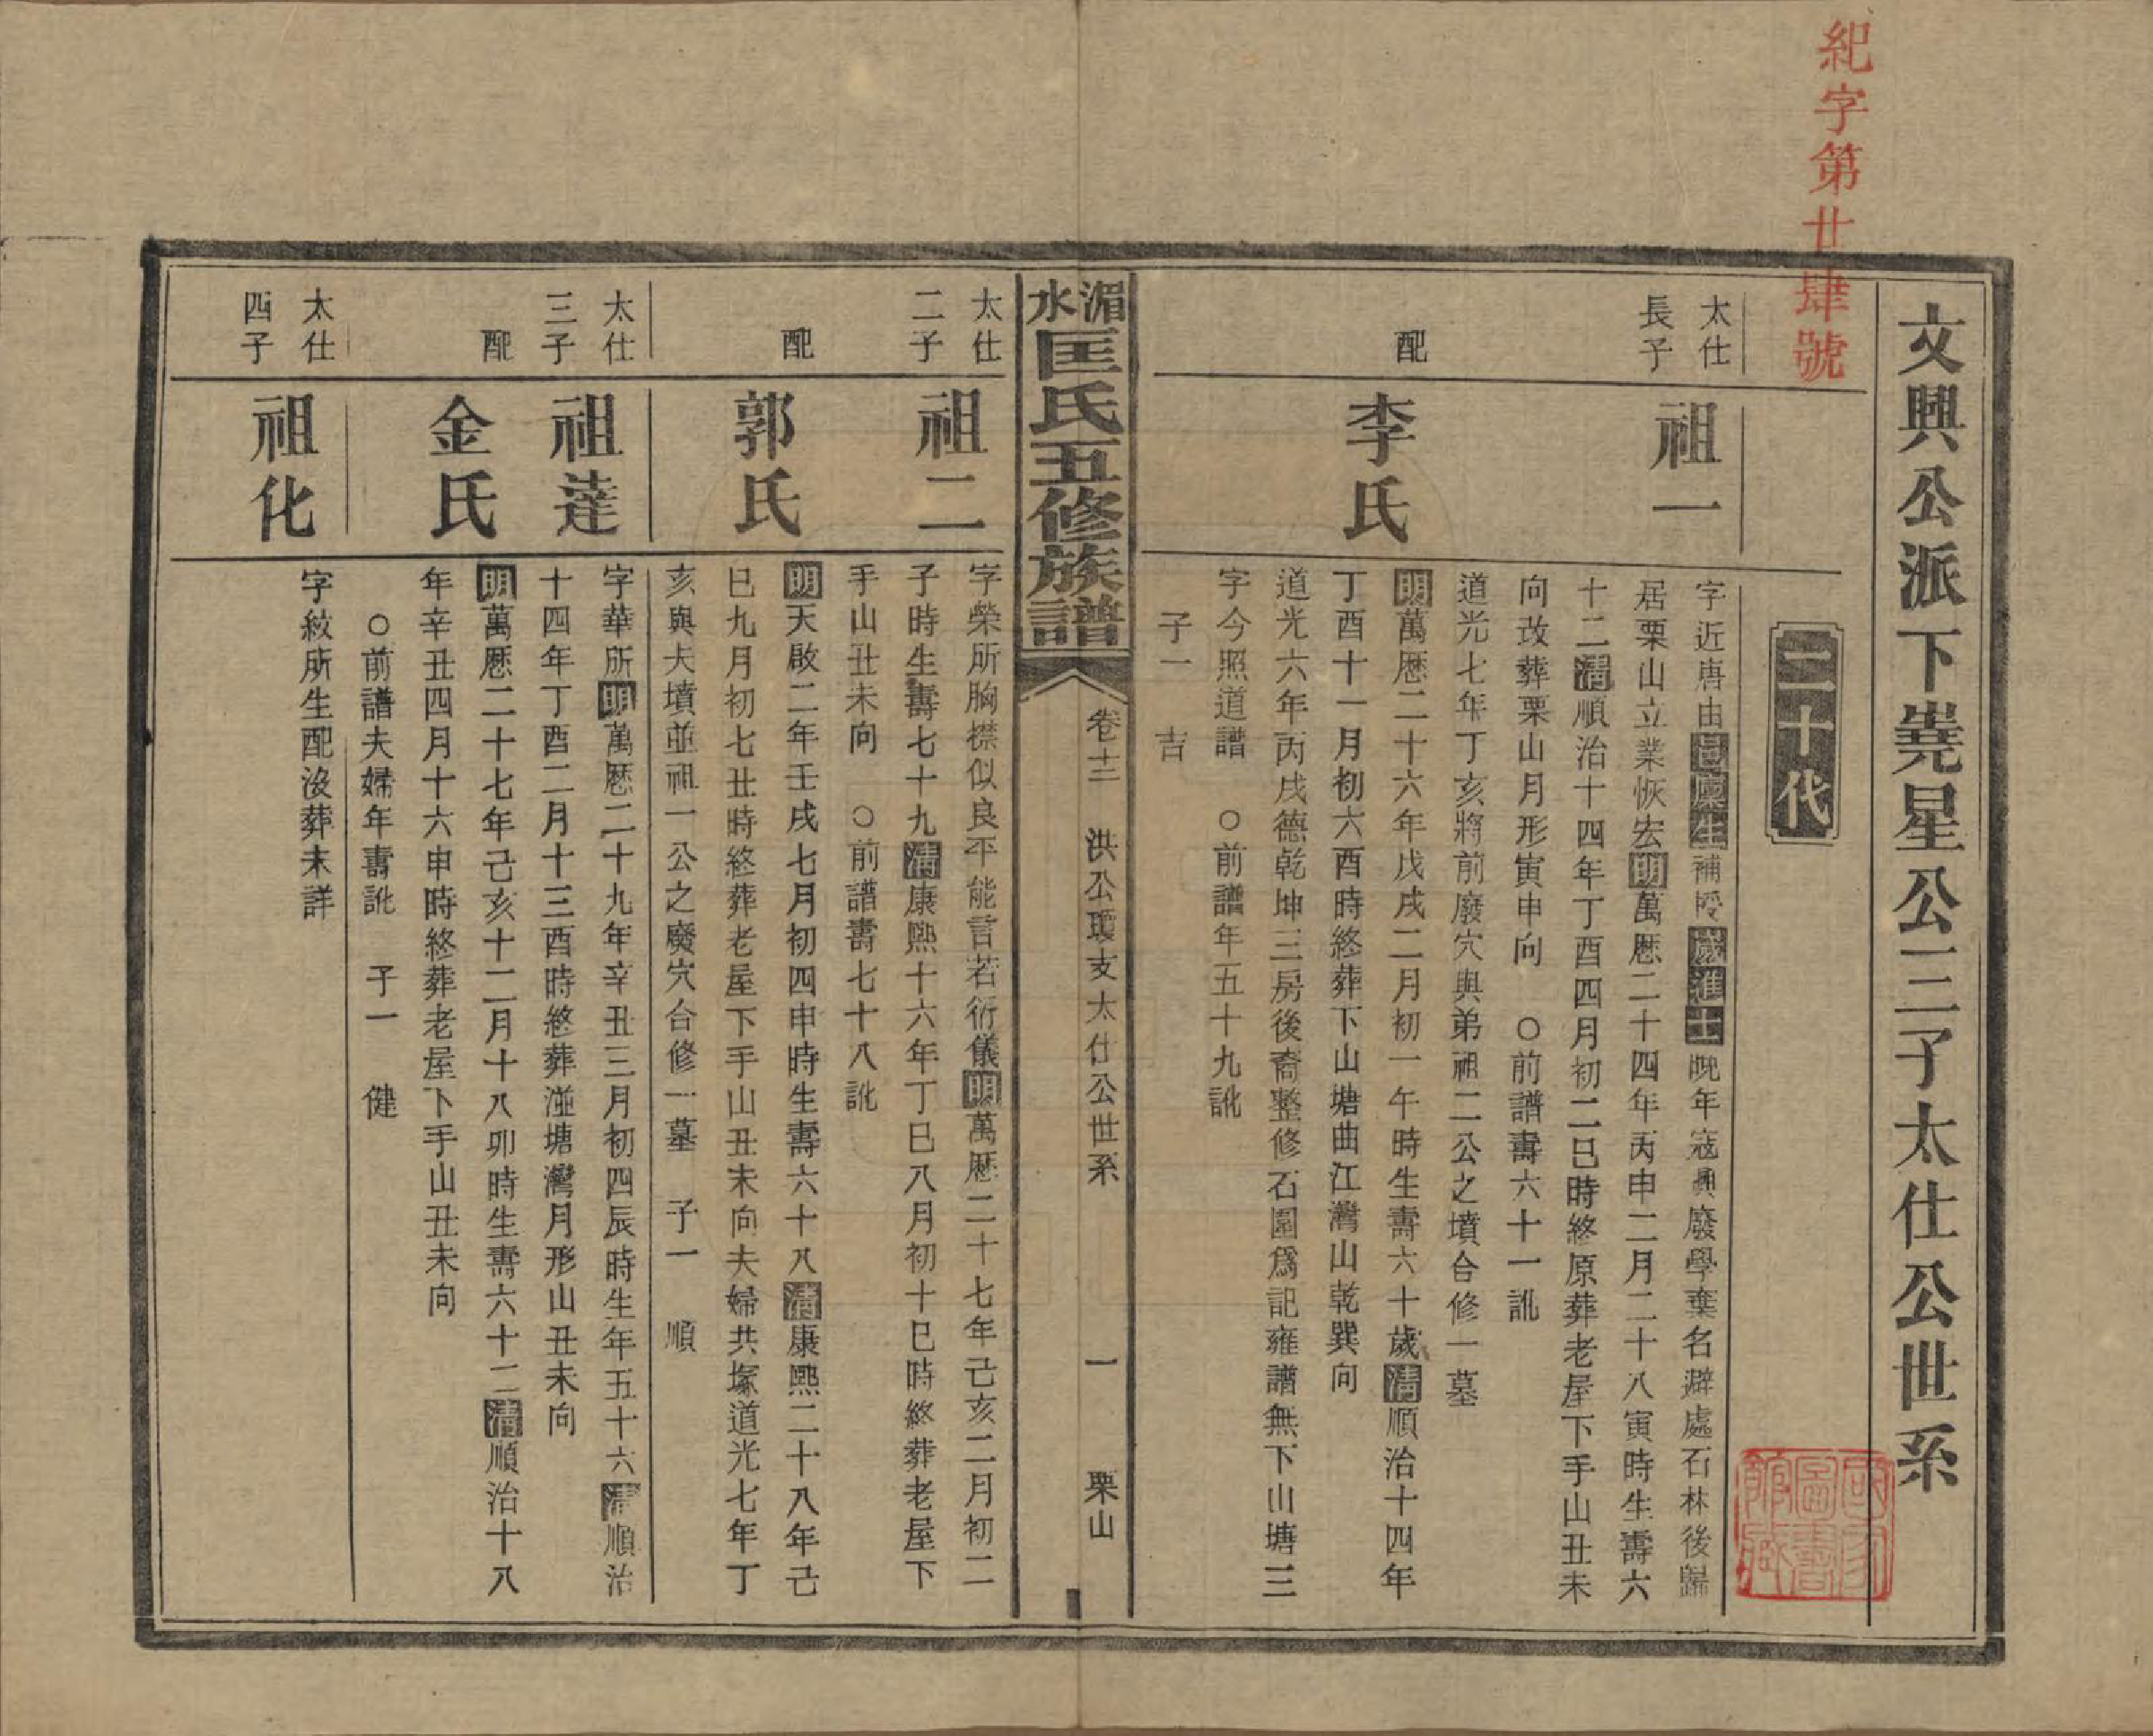 紀字第廿肆號
文興公派下堯星公三子太仕公世系
二十代
太仕
長子
祖一
字近唐由邑廩生補授歲進士晚年寇興廢學棄名避處石林後歸
居栗山立業恢宏明萬曆二十四年丙申二月二十八寅時生壽六
十二清順治十四年丁酉四月初二巳時終原葬老屋下手山丑未
向改葬栗山月形寅申向　○前譜壽六十一訛
道光七年丁亥將前廢穴與弟祖二公之墳合修一墓
配
李氏
明萬曆二十六年戊戌二月初一午時生壽六十歲清順治十四年
丁酉十一月初六酉時終葬下山塘曲江灣山乾巽向
道光六年丙戌德乾坤三房後裔整修石圍爲記雍譜無下山塘三
字今照道譜　○前譜年五十九訛
子一　吉
湄水匡氏五修族譜
卷十三　洪公瓊支太仕公世系　一　栗山
太仕
二子
祖二
字榮所胸襟似良平能言若衍儀明萬曆二十七年己亥二月初二
子時生壽七十九清康熙十六年丁巳八月初十巳時終葬老屋下
手山丑未向　○前譜壽七十八訛
配
郭氏
明天啟二年壬戌七月初四申時生壽六十八清康熙二十八年己
巳九月初七丑時終葬老屋下手山丑未向夫婦共塚道光七年丁
亥與夫墳並祖一公之廢穴合修一墓　子一　順
太仕
三子
祖達
字華所明萬曆二十九年辛丑三月初四辰時生年五十六清順治
十四年丁酉二月十三酉時終葬塘灣月形山丑未向
配
金氏
明萬曆二十七年己亥十二月十八卯時生壽六十二清順治十八
年辛丑四月十六申時終葬老屋下手山丑未向
○前譜夫婦年壽訛　子一　健
太仕
四子
祖化
字紋所生配沒葬未詳
國家圖書館藏